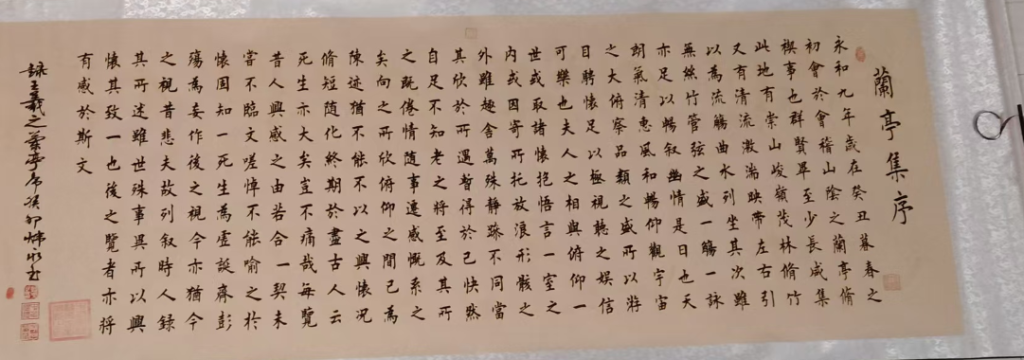 蘭亭集序
永和九年歲在癸丑暮春之
初會於會稽山陰之蘭亭脩
禊事也群賢畢至少長咸集
此地有崇山峻嶺茂林脩竹
又有清流激湍映帶左右引
以為流觴曲水列坐其次雖
無絲竹管弦之盛一觴一詠
亦足以暢叙幽情是日也天
朗氣清惠風和暢仰觀宇宙
之大俯察品類之盛所以遊
目騁懷足以極視聽之娛信
可樂也夫人之相與俯仰一
世或取諸懷抱悟言一室之
内或因寄所托放浪形骸之
外雖趣舍萬殊靜躁不同當
其欣於所遇暫得於己快然
自足不知老之將至及其所
之既倦情隨事遷感慨系之
矣向之所欣俯仰之間已為
陳迹猶不能不以之興懷况
脩短隨化終期於盡古人云
死生亦大矣豈不痛哉每覽
昔人興感之由若合一契未
嘗不臨文嗟悼不能喻之於
懷固知一死生為虛誕齊彭
殤為妄作後之視今亦猶今
之視昔悲夫故列叙時人錄
其所述雖世殊事異所以興
懷其致一也後之覽者亦將
有感於斯文
錄王羲之蘭亭序癸卯書